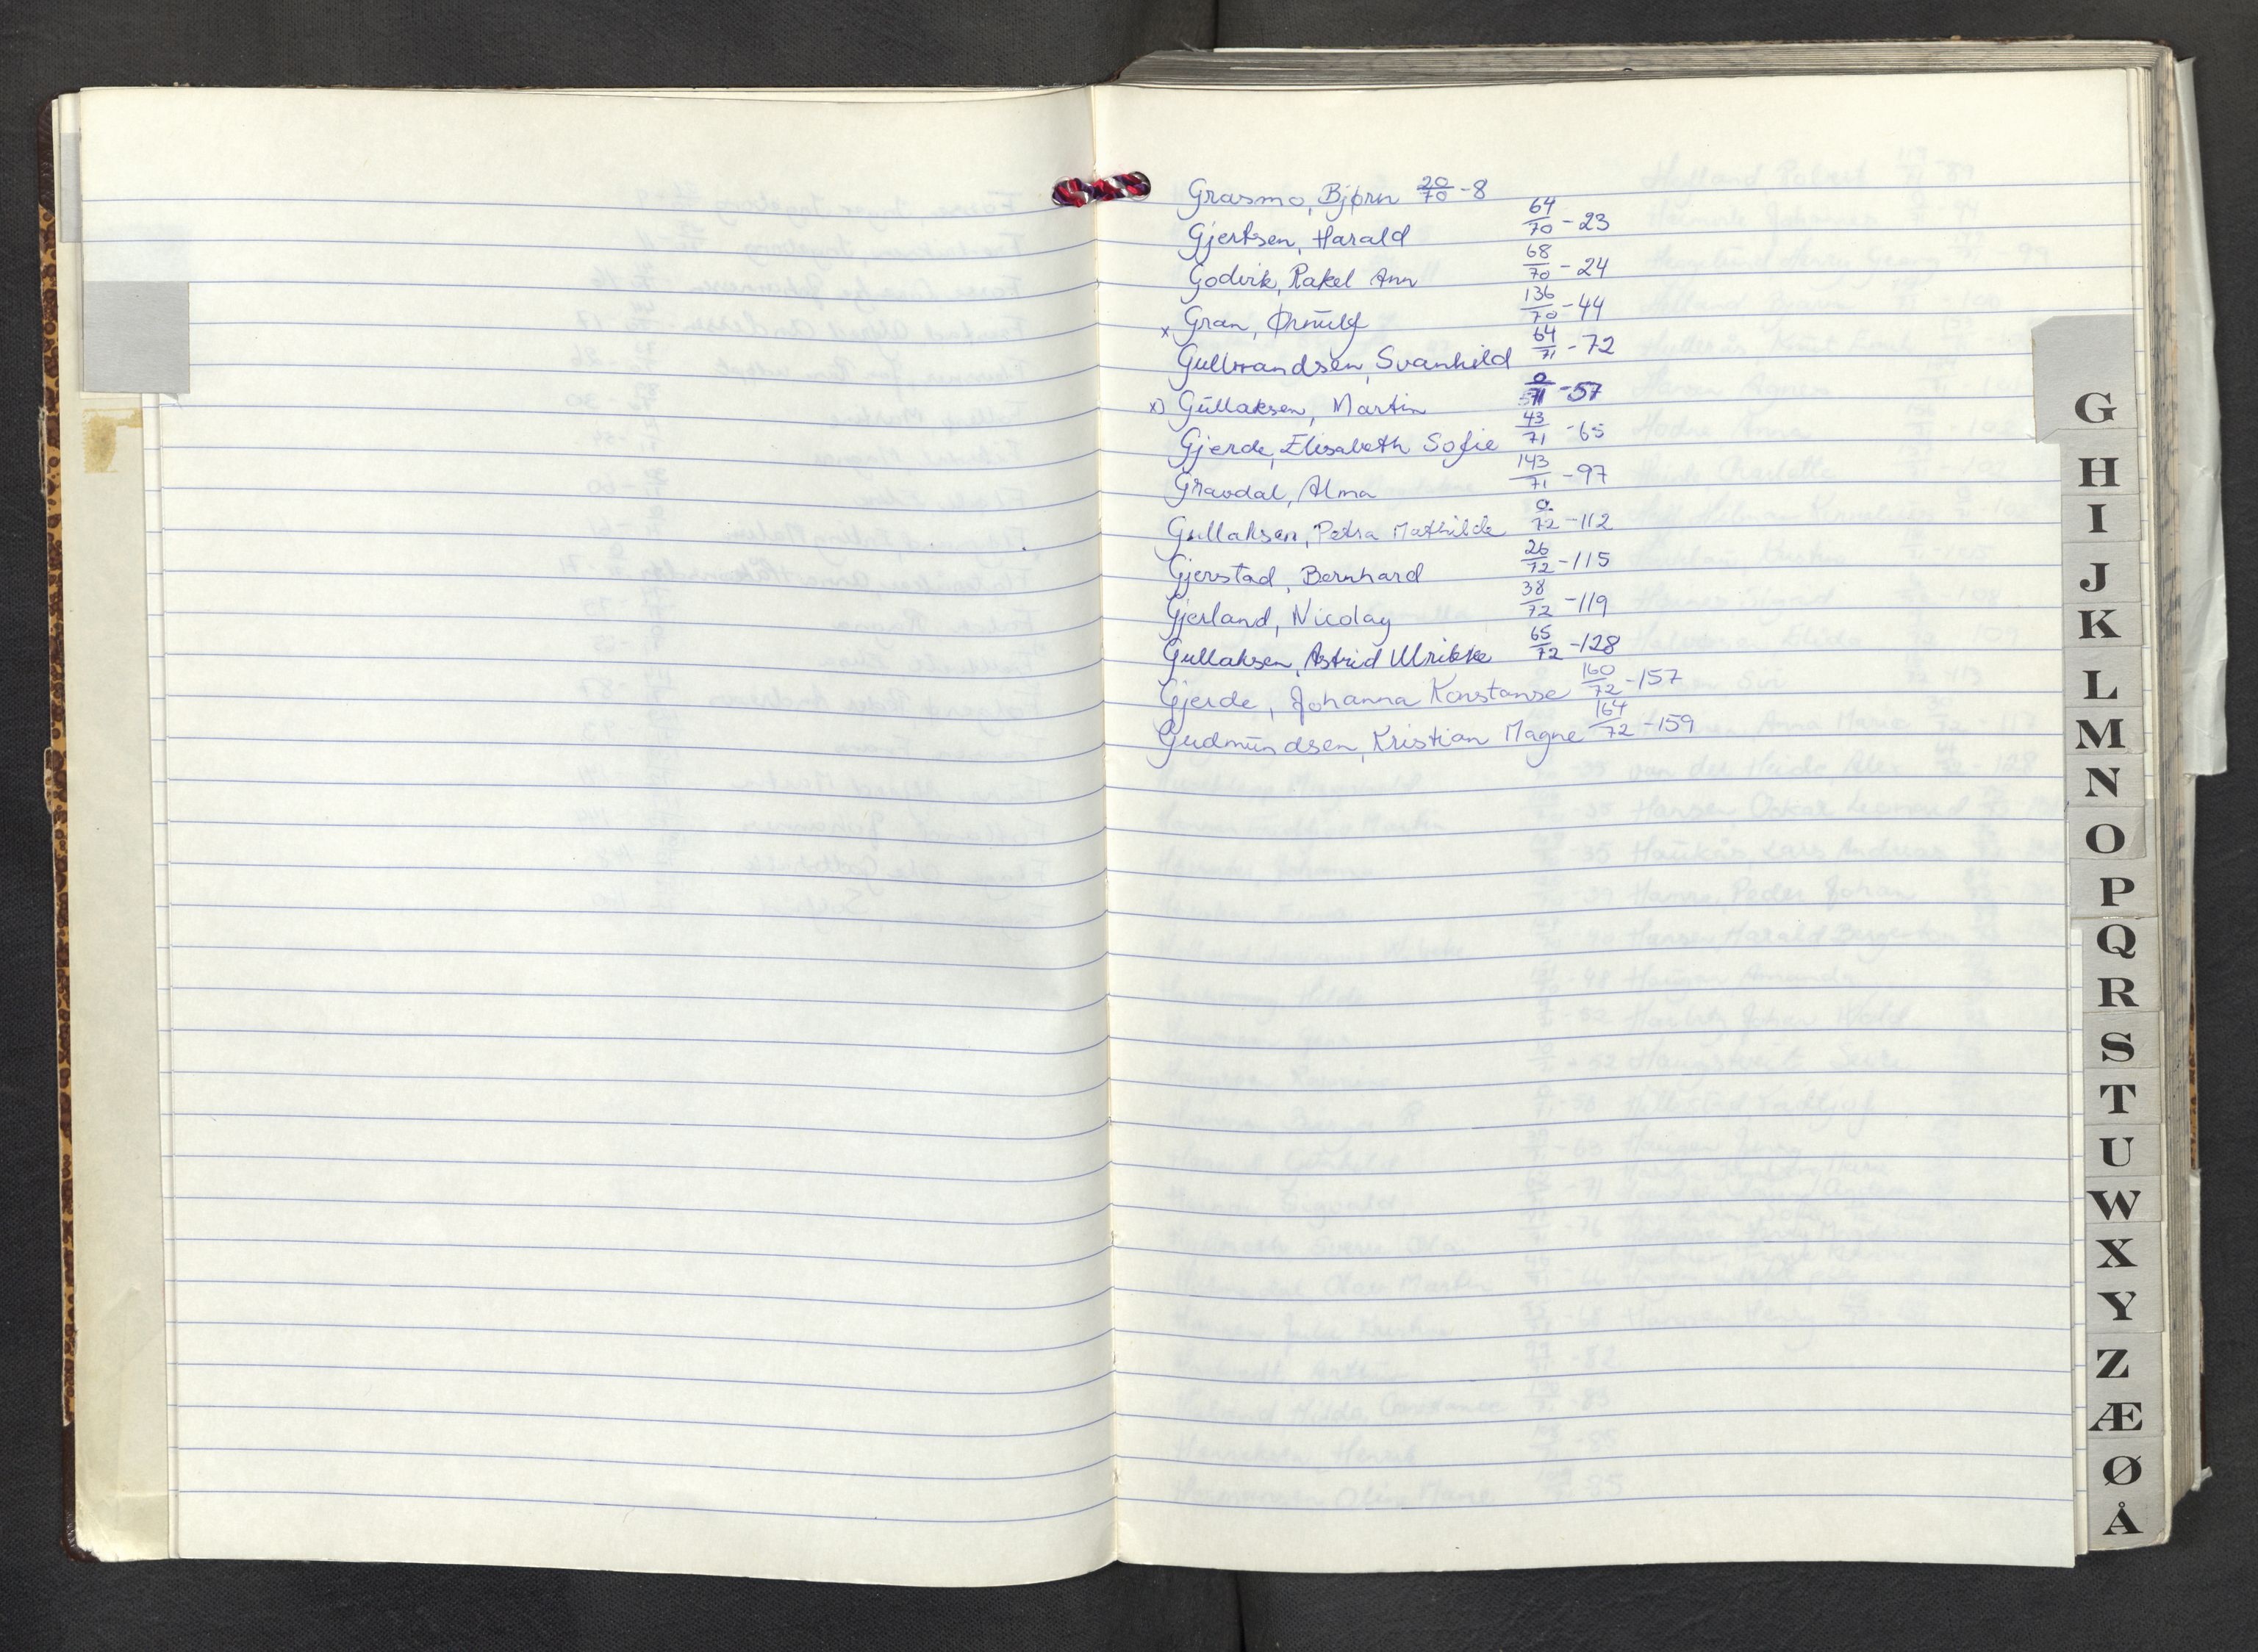 Grasmo, Bjørn 20/70 - 8
Gjertsen, Harald 64/70 - 23
Godvik, Rakel Ann 68/70 - 24
x Gran, Ørnulf 136/70 - 44
Gulbrandsen, Svanhild 64/71 - 72
x) Gullaksen, Martin 0/71 - 57
Gjerde, Elisabeth Sofie 43/71 - 65
Gravdal, Alma 143/71 - 97
Gullaksen, Petra Mathilde 0/72 - 112
Gjerstad, Bernhard 26/72 - 115
Gjerland, Nicolay 38/72 - 119
Gullaksen, Astrid Ulrikke 65/72 - 128
Gjerde, Johanna Konstanse 160/72 - 157
Gudmundsen, Kristian Magne 164/72 - 159
G
H
I
J
K
L
M
N
O
P
Q
R
S
T
U
W
X
Y
Z
Æ
Ø
Å